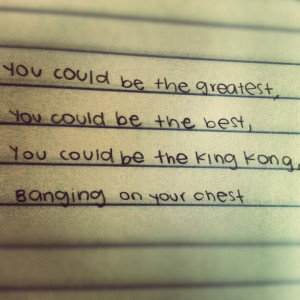 You could be the greatest,
You could be the best,
You could be the King Kong,
Banging on your chest